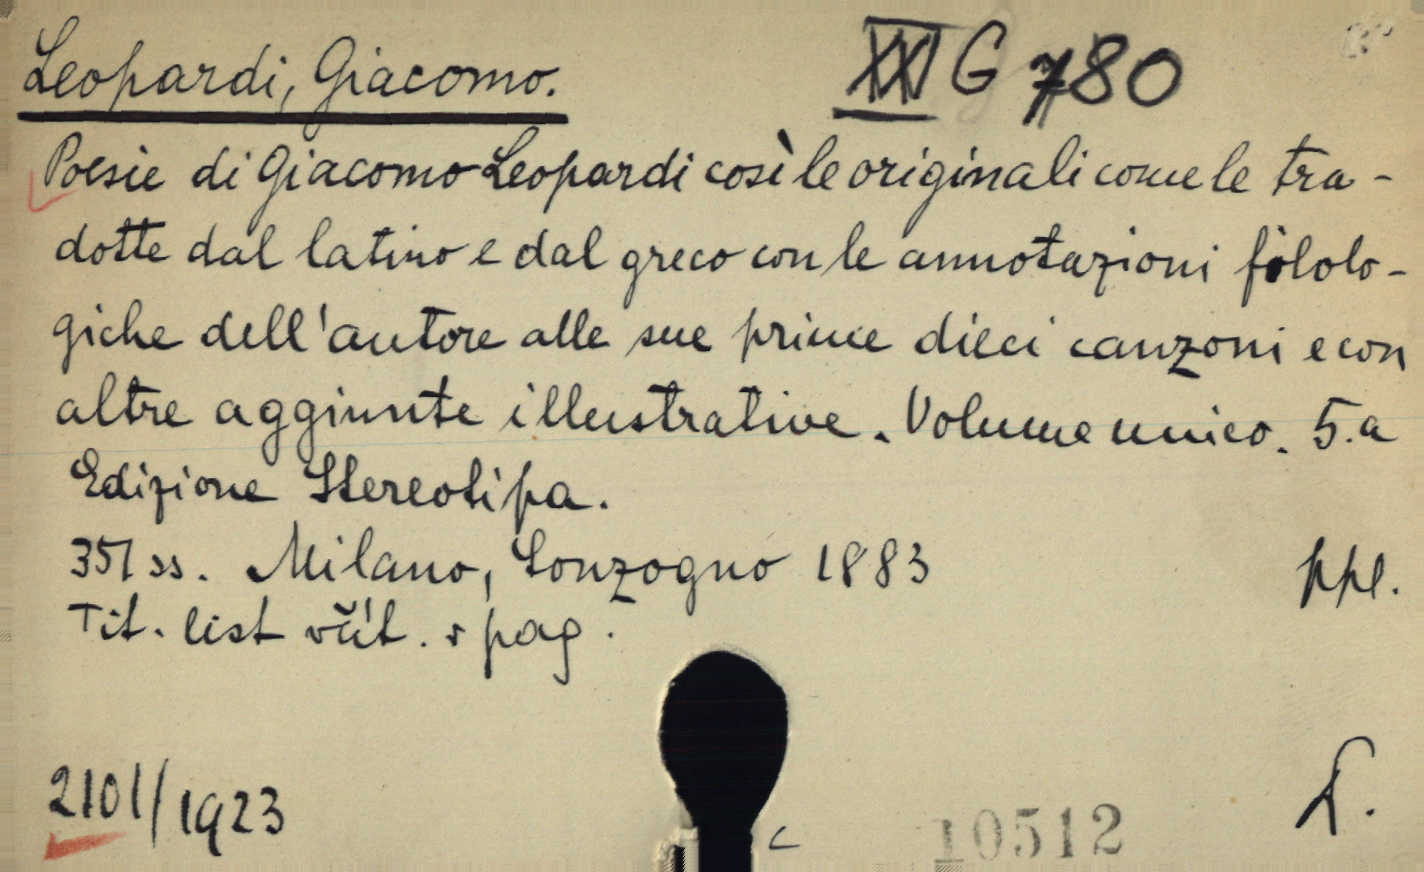 Leopardi, Giacomo.
XXI G 780
Poesie di Giacomo Leopardi così le originali come le tra-
dotte dal latino e dal greco con le annotazioni filolo-
giche dell'autore alle sue prime dieci canzoni e con
altre aggiunte illustrative. Volume unico. 5.a
Edizione Stereotipa.
351 ss. Milano, Sonzogno 1883
ppl.
Tit. list včít. v pag.
2101/1923
10512